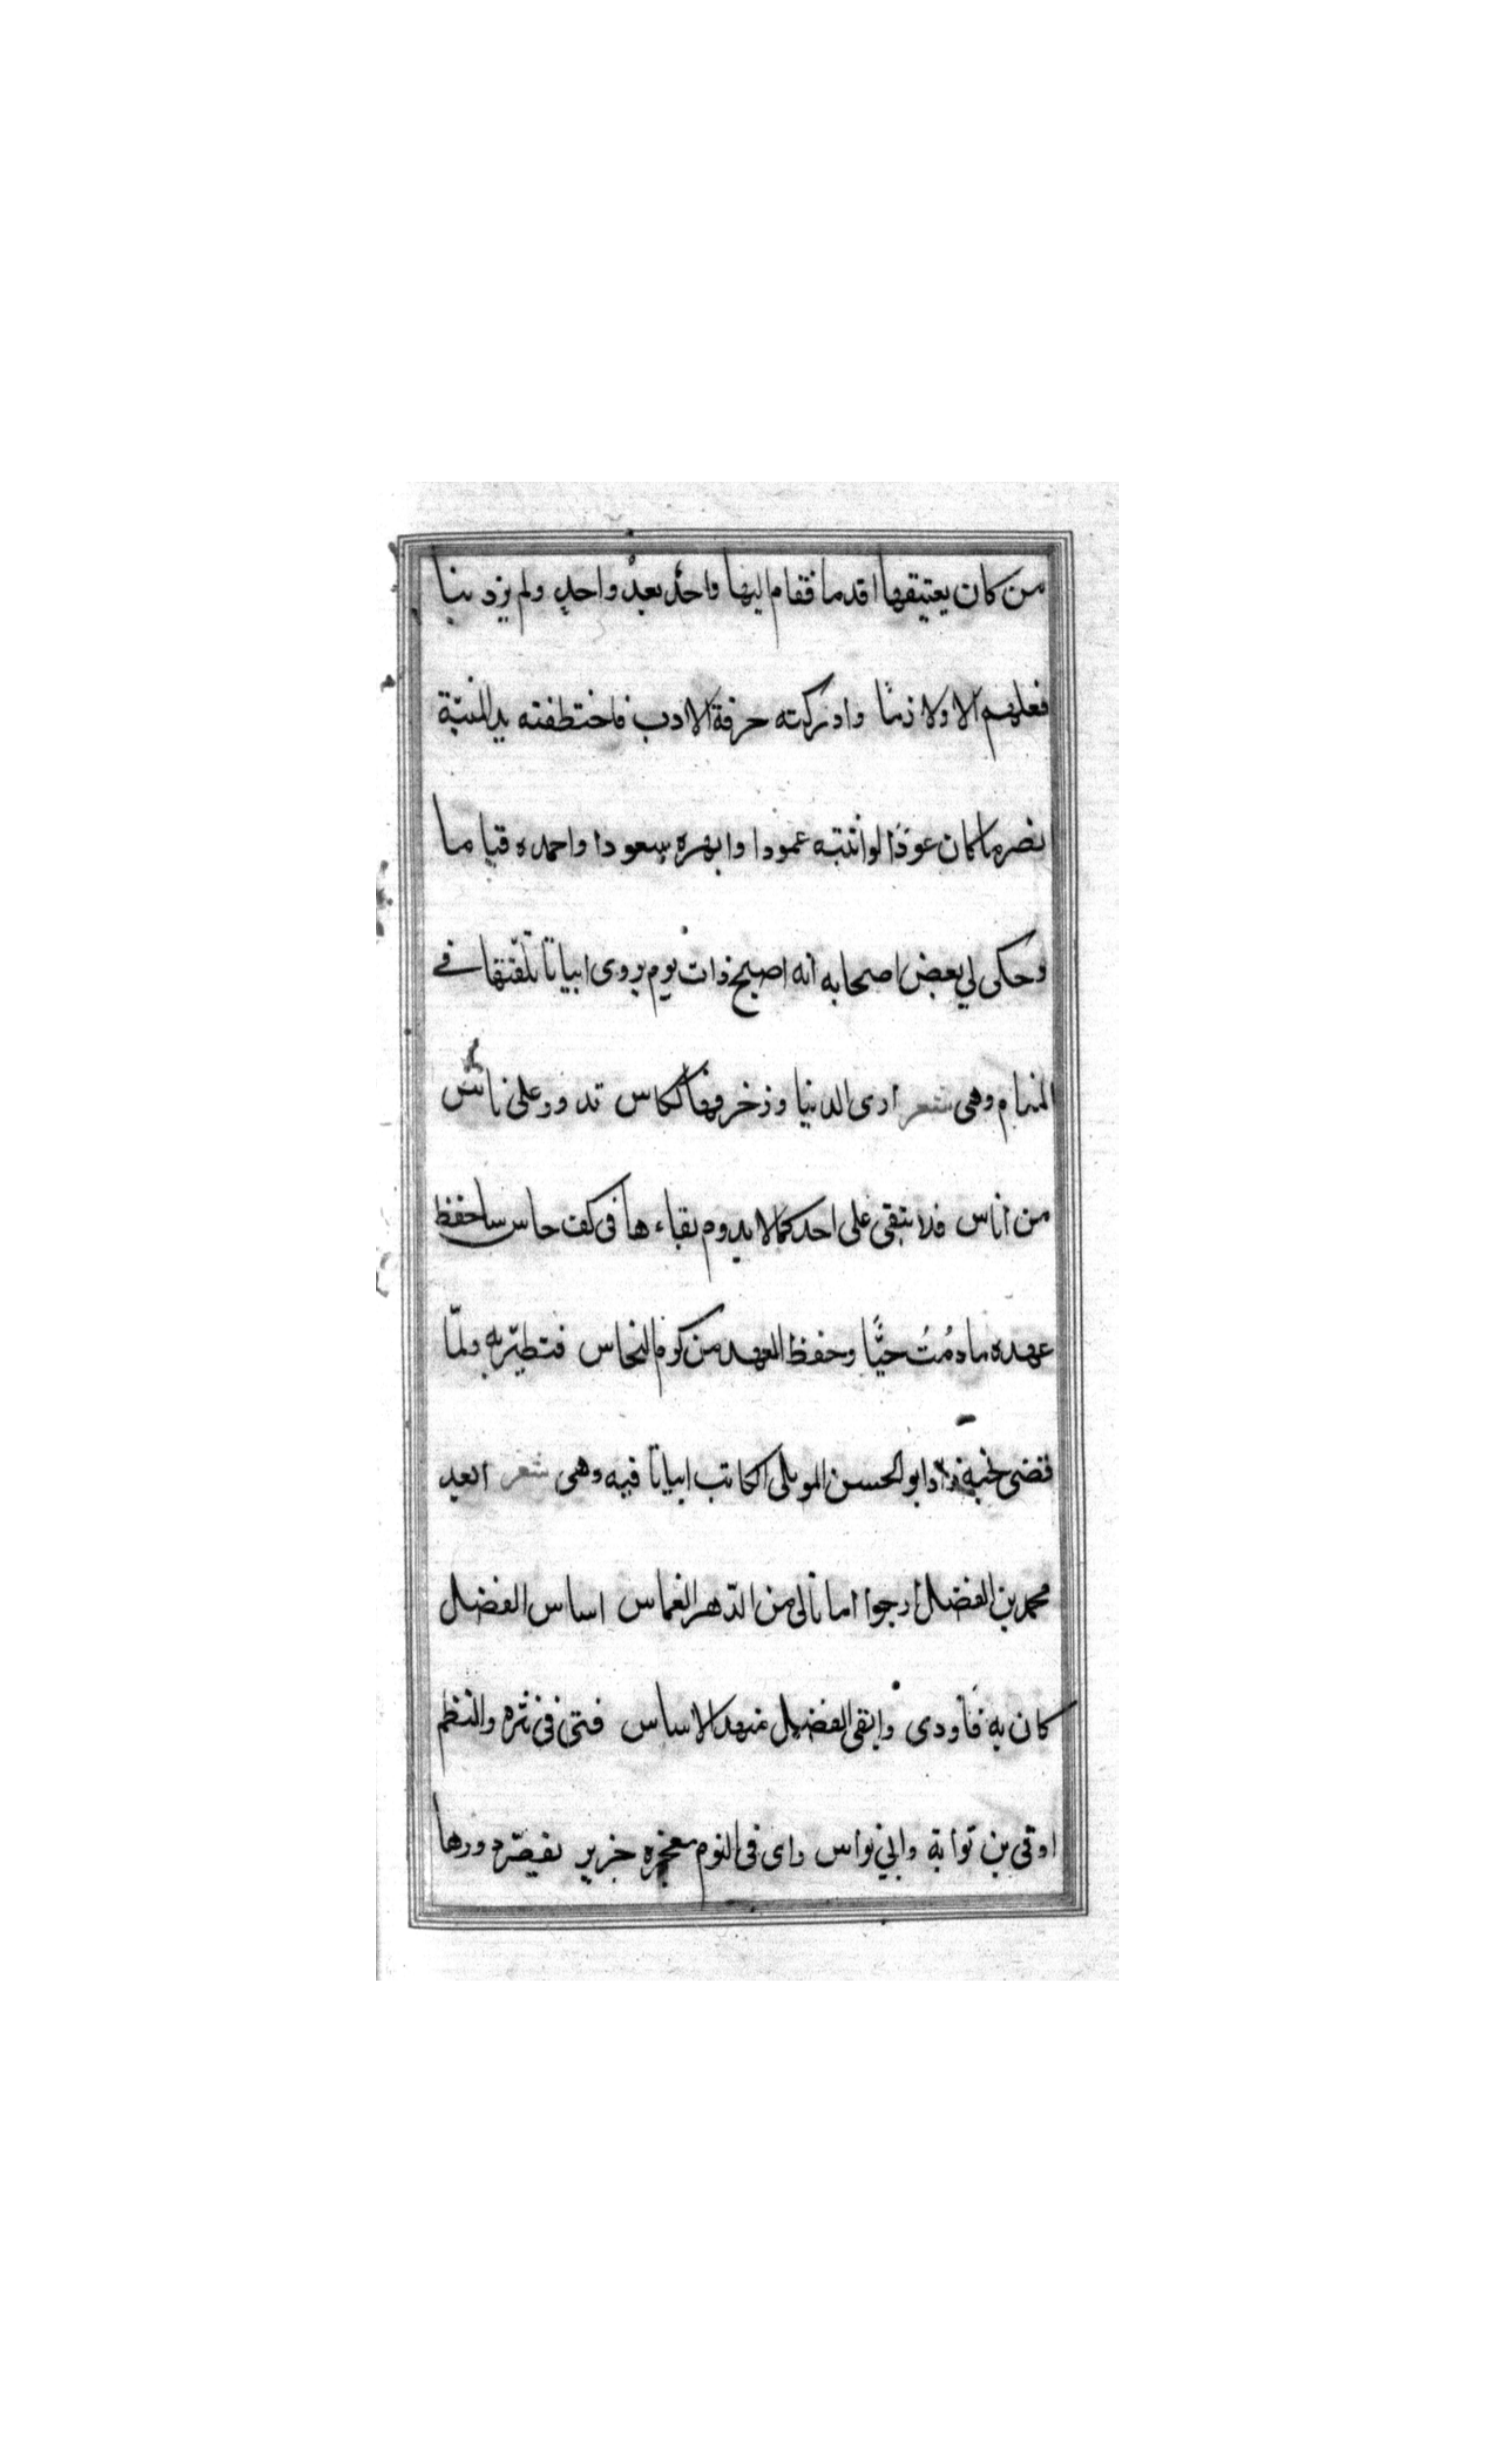 من كان يعتيقها اقدما فقام اليها واحدٌ بعدُ واحدٍ ولم يزد بنا
فعلهم الا ولا ذمًّا وادركته حرفة الادب فاختطفته يد المنيّة
نضرما كان عودًا لوانتبه عمودا وابهره سعودا واحمده قياما
وحكى لي بعض اصحابه انه اصبح ذات يوم يروى ابياتا تلقّنها في
المنام وهى شعر ارى الدنيا وزخرفها ككاس تدور على ناسٍ
من اناس فلا تبقى على احد كما لا يدوم بقاءها فى كف حاس ساحفظ
عهده ما دُمتُ حيًّا وحفظ العهد من كرم النحاس فتطيّر به ولمّا
قضى نحبه زاد ابو الحسن الموملى الكاتب ابياتا فيه وهى شعر ابعد
محمد بن الفضل ارجوا امانا لى من الدّهر الغماس اساس الفضل
كان به فأودى وابقى الفضل منهد الاساس فتى فى نثره والنظم
اوفى بن توابة وابي نواس راى فى النوم معجزه جزير نفيضّه دورها